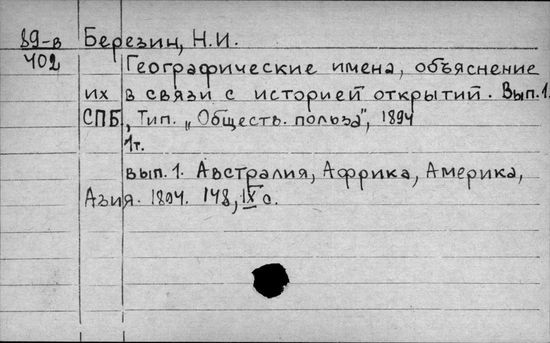 89-в Березин, Н.И.
402
Географические имена, объяснение
их в связи с историей открытий. Вып.1.
СПБ, Тип. „Обществ. польза", 1894
1т.
вып. 1. Австралия, Африка, Америка,
Азия. 1894. 148, IX с.